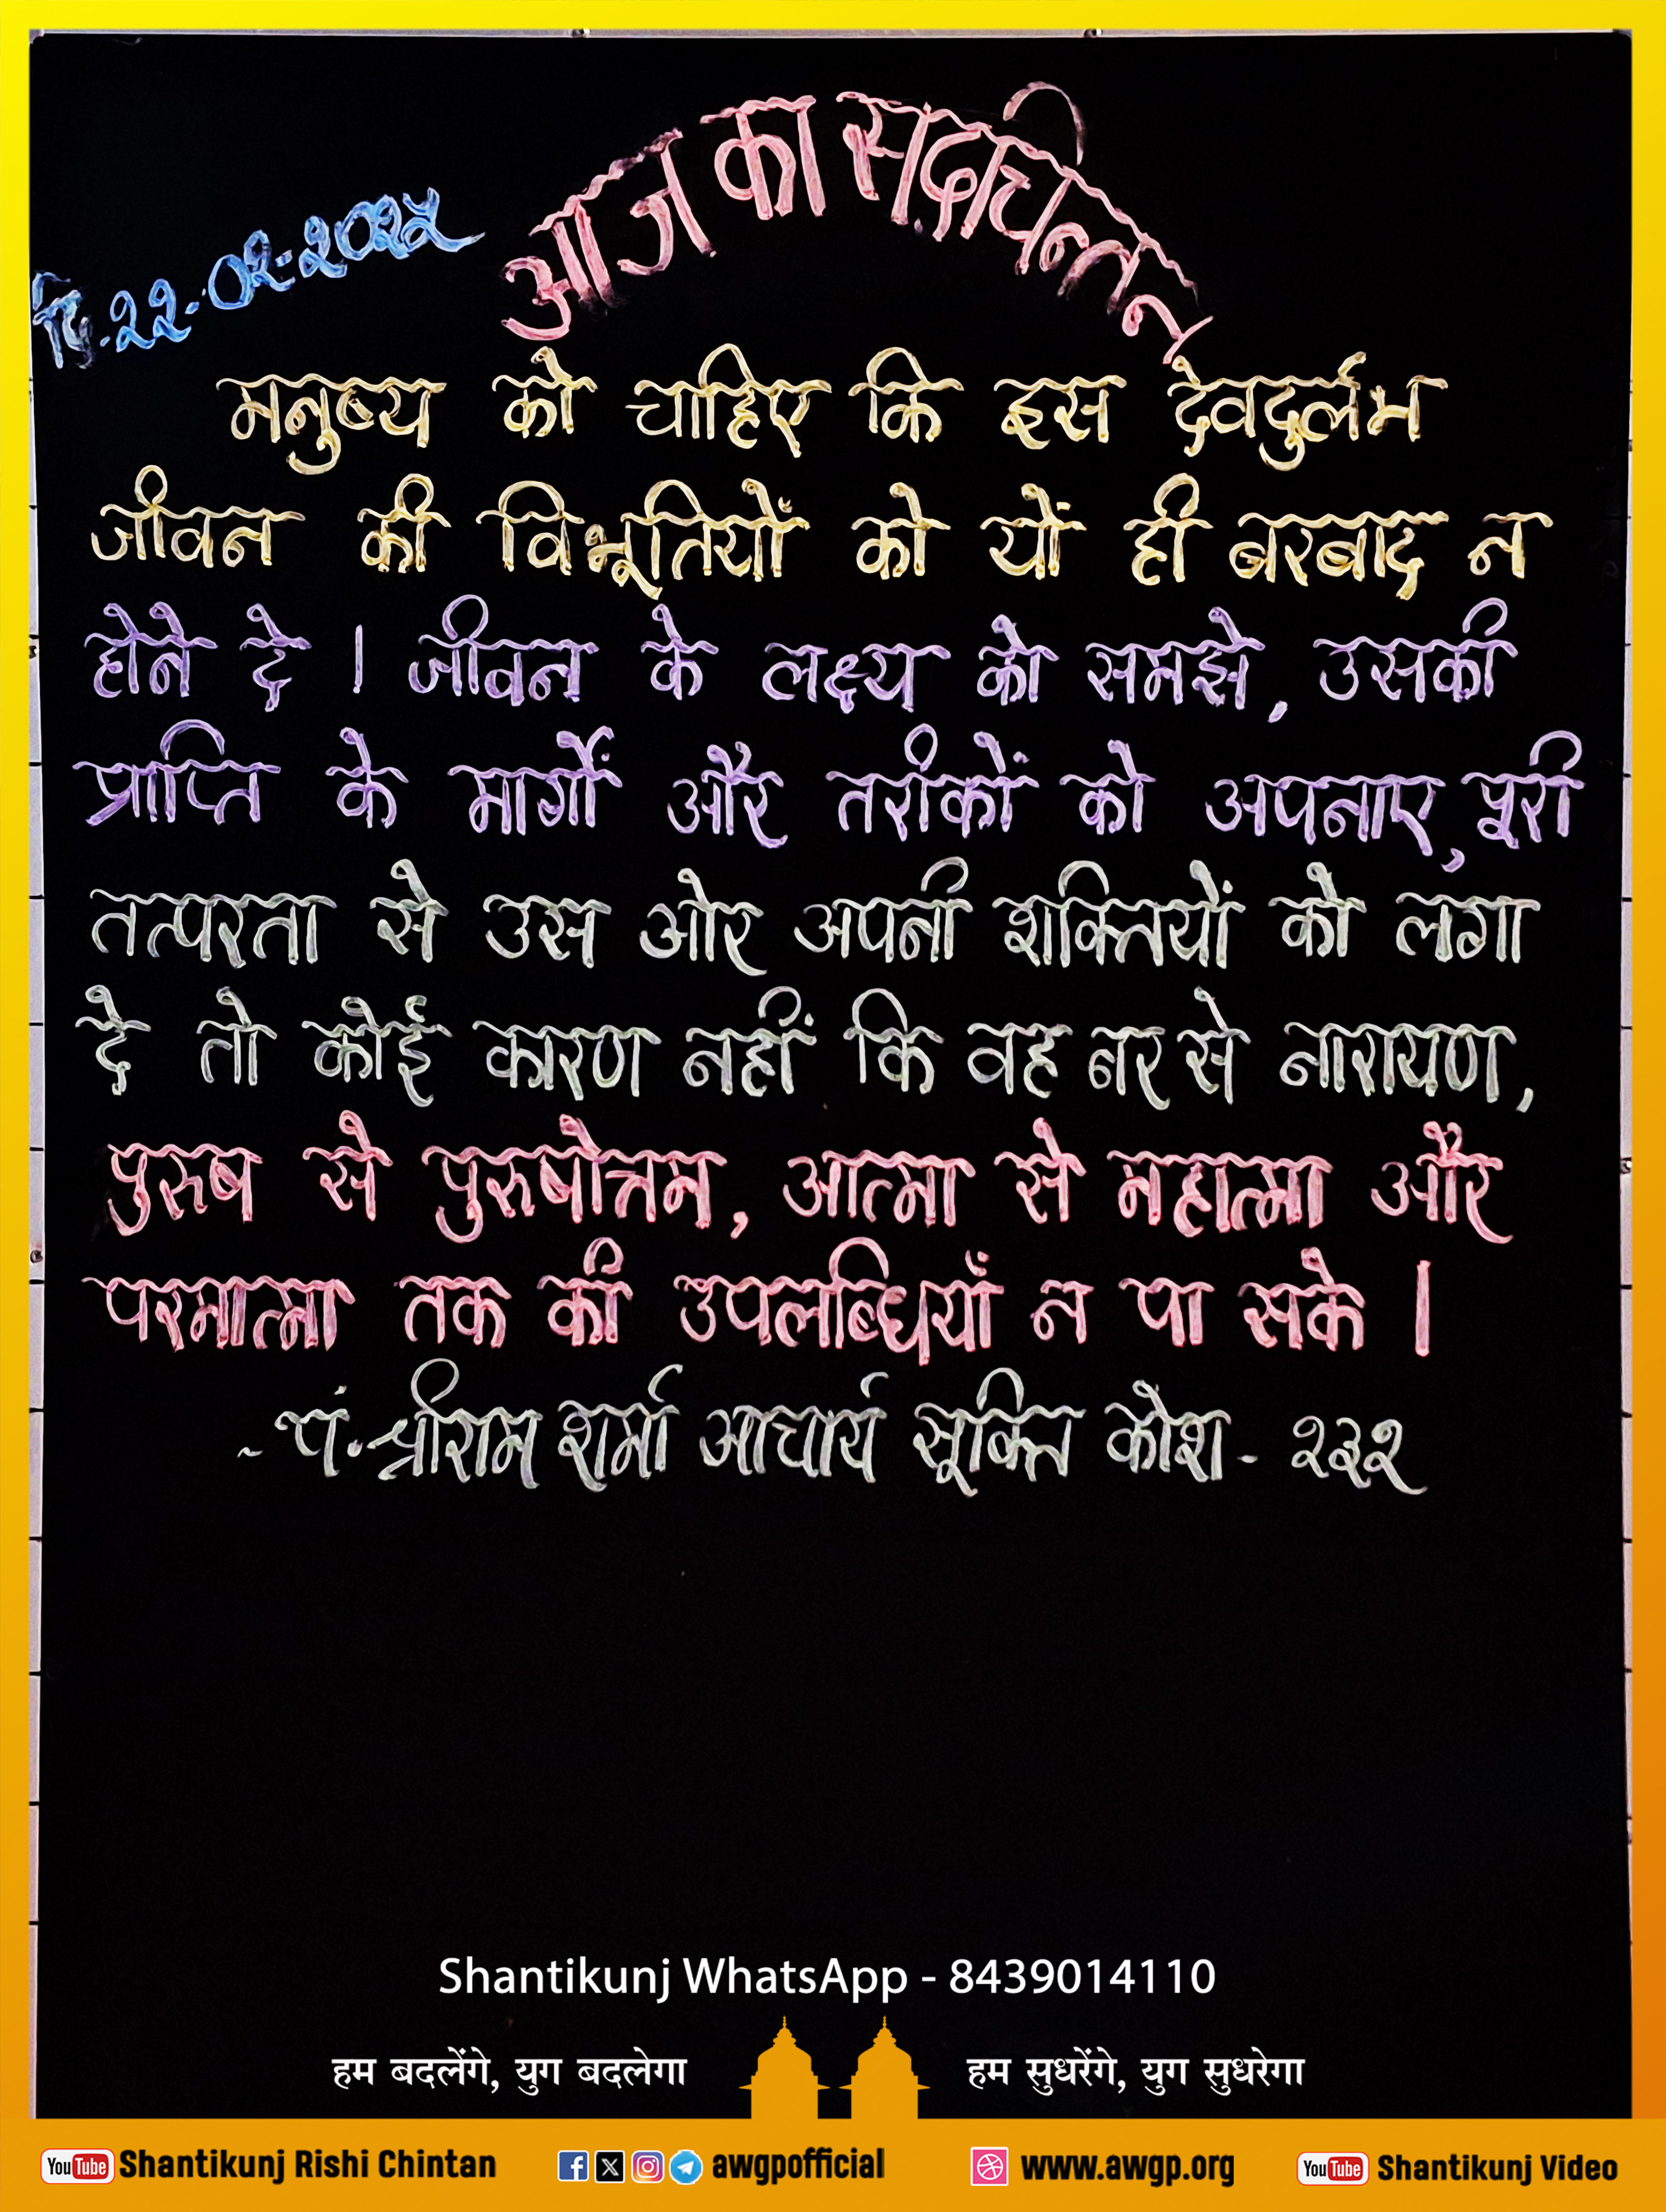 आज का सद्चिन्तन
दि.22-02-202५
मनुष्य को चाहिए कि इस देवदुर्लभ
जीवन की विभूतियों को यों ही बरबाद न
होने दे । जीवन के लक्ष्य को समझे, उसकी
प्राप्ति के मार्गों और तरीकों को अपनाए, पूरी
तत्परता से उस ओर अपनी शक्तियों को लगा
दे तो कोई कारण नहीं कि वह नर से नारायण,
पुरुष से पुरुषोत्तम, आत्मा से महात्मा और
परमात्मा तक की उपलब्धियाँ न पा सके ।
- पं. श्रीराम शर्मा आचार्य सूक्ति कोश - २३२
Shantikunj WhatsApp - 8439014110
हम बदलेंगे, युग बदलेगा हम सुधरेंगे, युग सुधरेगा
YouTube Shantikunj Rishi Chintan awgpofficial www.awgp.org YouTube Shantikunj Video